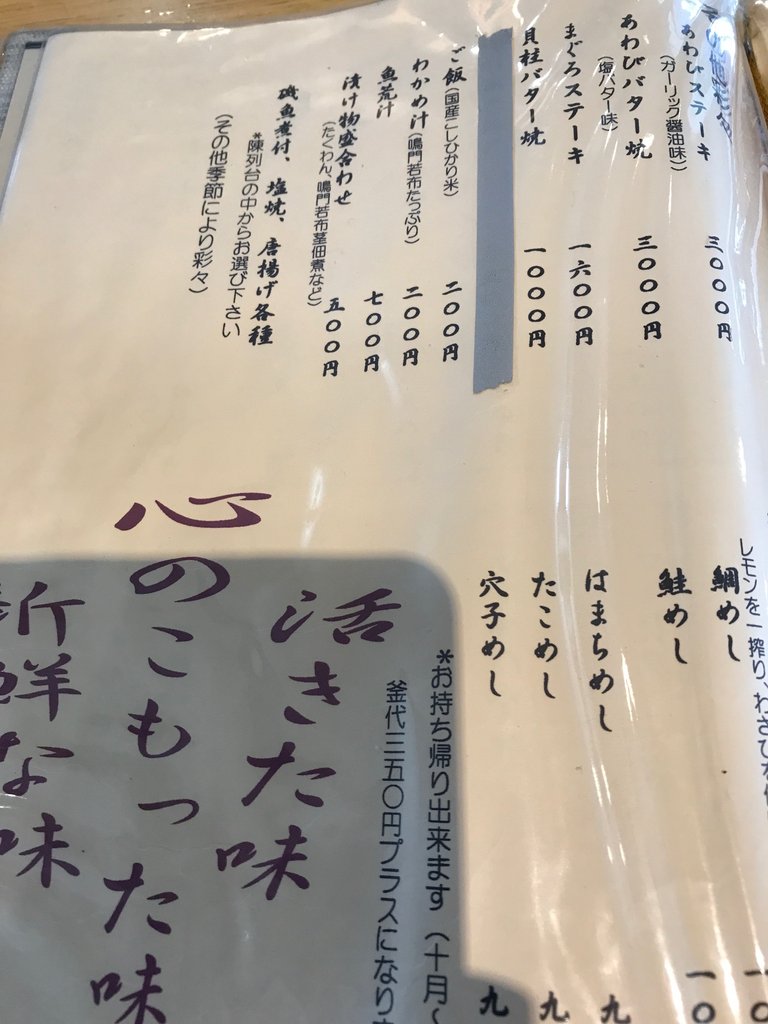 その他彩々
あわびステーキ 三〇〇〇円
(ガーリック醤油味)
あわびバター焼 三〇〇〇円
(塩バター味)
まぐろステーキ 一六〇〇円
貝柱バター焼 一〇〇〇円
ご飯(国産こしひかり米) 二〇〇円
わかめ汁(鳴門若布たっぷり) 二〇〇円
魚荒汁 七〇〇円
漬け物盛合わせ 五〇〇円
(たくわん、鳴門若布茎佃煮など)
磯魚煮付、塩焼、唐揚げ各種
*陳列台の中からお選び下さい
(その他季節により彩々)
レモンを一搾り、わさびを
鯛めし 一〇
鮭めし 一〇
はまちめし 九
たこめし 九
穴子めし 九
*お持ち帰り出来ます(十月〜
釜代三五〇円プラスになり
活きた味
心のこもった味
新鮮な味